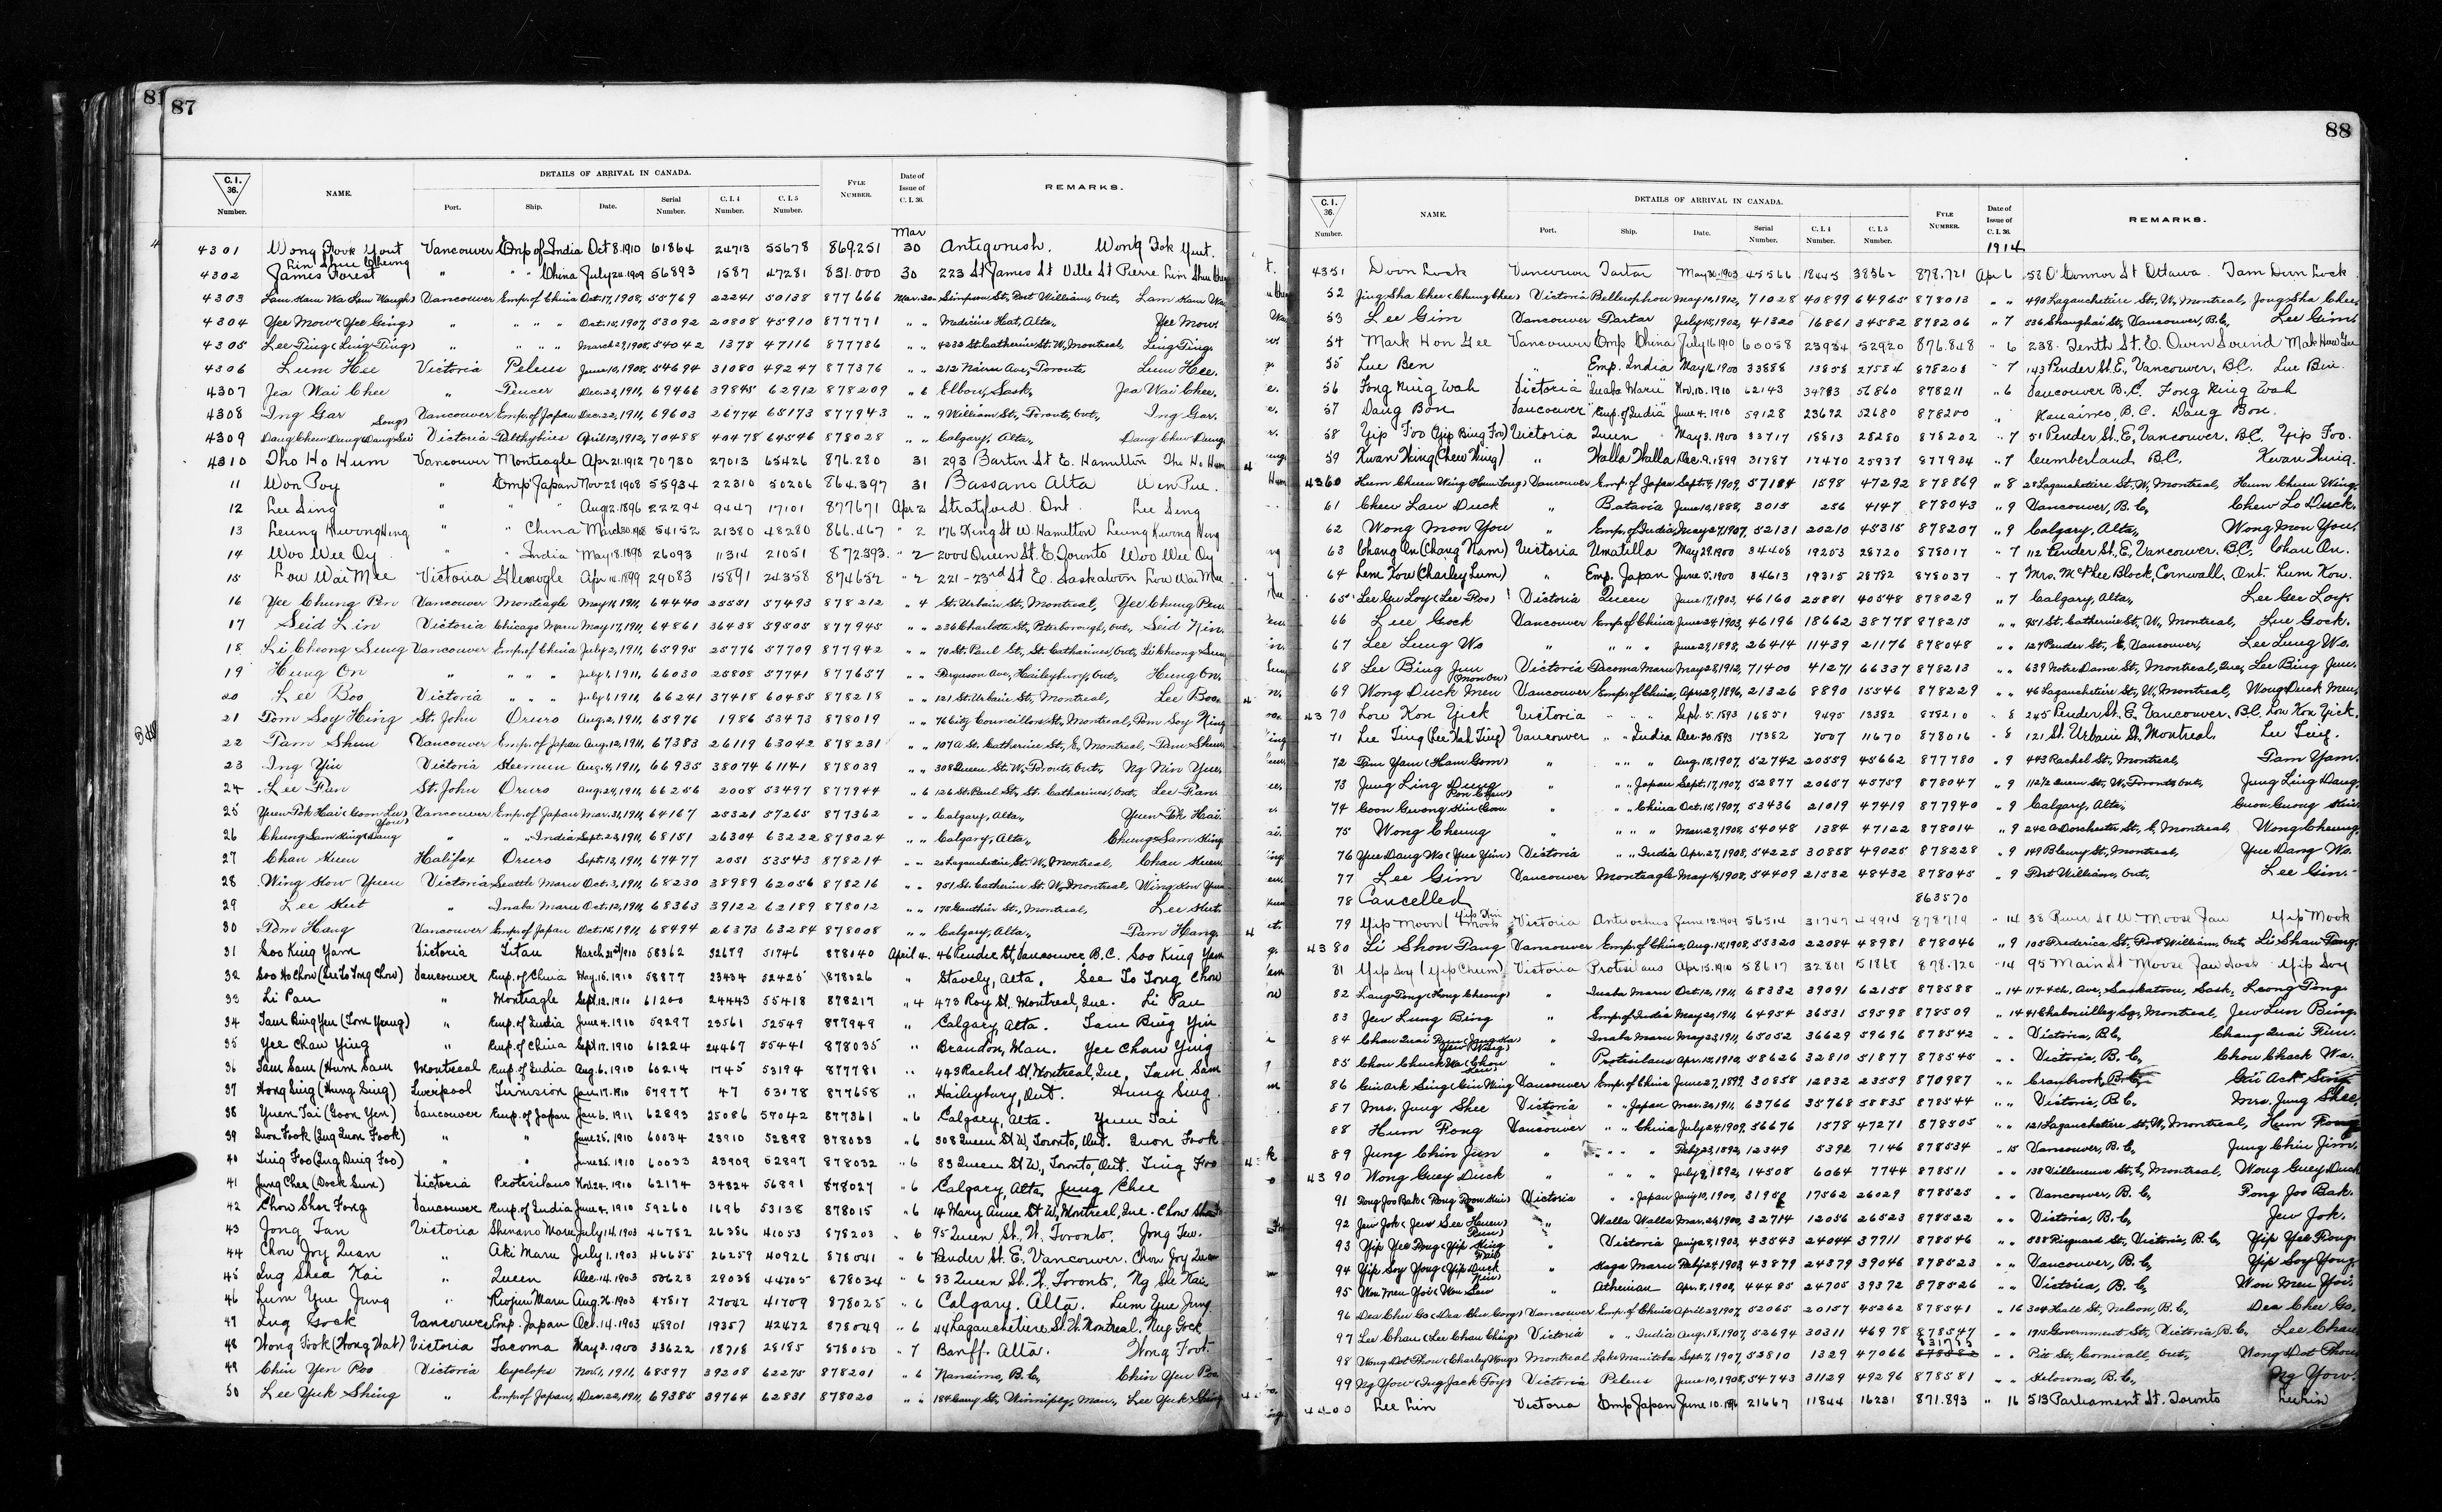 81
87
C.I. 36. Number.
NAME.
DETAILS OF ARRIVAL IN CANADA.
Port. Ship. Date. Serial Number. C.I.4 Number. C.I.5 Number.
FYLE NUMBER.
Date of Issue of C.I.36.
REMARKS.
Mar
4301 Wong Fook Yout Vancouver Emp of India Oct 8.1910 61864 24713 55678 869.251 30 Antigonish. Wong Fok Yut.
Lim Shue Cheong
4302 James Forest " " " China July 24.1909 56893 1587 47281 831.000 30 223 St James St Ville St Pierre Lim Shue
4303 Lam Kam Wa (Lam Waugh) Vancouver Emp. of China Oct. 17, 1908, 55769 22241 50138 877666 Mar. 30 Simpson St, Port William, Ont, Lam Kam Wa
4304 Yee Mow (Yee Ging) " " " " Oct. 15, 1907, 53092 20808 45910 877771 " " Medicine Hat, Alta, Yee Mow.
4305 Lee Ting (Ling Ting) " " " " March 29, 1908, 54042 1378 47116 877786 " " 4232 St. Catherine St. W, Montreal, Ling Ting.
4306 Lum Hee Victoria Peleus June 10, 1908, 54694 31080 49247 877376 " " 212 Nairn Ave, Toronto Lum Hee.
4307 Jea Wai Chee " Teucer Dec. 23, 1911, 69466 39845 62912 878209 " 6 Elbow, Sask, Jea Wai Chee.
4308 Ing Gar Vancouver Emp. of Japan Dec. 22, 1911, 69603 26774 65173 877943 " " 9 William St., Toronto, Ont, Ing Gar.
4309 Victoria Talthybius April 12, 1912, 70488 40478 64546 878028 " " Calgary, Alta, Dang Chew Dang
4310 Tho Ho Hum Vancouver Monteagle Apr 21.1912 70730 27013 65426 876.280 31 293 Barton St E. Hamilton Tho Ho Hum
11 Won Poy " Emp Japan Nov 28 1908 55934 22310 50206 864.397 31 Bassano Alta Wen Pue.
12 Lee Sing " " " Aug 12.1896 22294 9447 17101 877671 Apr 2 Stratford Ont Lee Sing
13 Leung Kwong Hing " " China 54152 21380 48280 866.467 " 2 176 King St W. Hamilton Leung Kwong Hing
14 Woo Wee Oy " " India May 18.1898 26093 11314 21051 872.393 " 2 2000 Queen St. E Toronto Woo Wee Oy
15 Low Wai Mee Victoria Glenogle Apr 14.1899 29083 15891 24358 874652 " 2 221-23rd St E. Saskatoon Low Wai Mee
16 Yee Chung Pen Vancouver Monteagle May 14, 1911, 64440 25551 57493 878212 " 4 St. Urbain St, Montreal, Yee Chung Pen
17 Seid Lin Victoria Chicago Maru May 17, 1911, 64861 36438 59505 877945 " " 236 Charlotte St, Peterborough, Ont, Seid Nin.
18 Li Cheong Sung Vancouver Emp. of China July 2, 1911, 65995 25776 57709 877942 " " 70 St. Paul St, St. Catharines, Ont, Li Cheong Sung
19 Hung On " " " " July 1, 1911, 66030 25808 57741 877657 " " Ferguson Ave, Haileybury, Ont, Hung On.
20 Lee Boo Victoria " " " July 1, 1911, 66241 37418 60485 878218 " " 121 St. Urbain St, Montreal, Lee Boo.
21 Tom Soy Hing St. John Oruro Aug. 2, 1911, 65976 1986 53473 878019 " " 76 City Councillors St, Montreal, Tom Soy Hing
22 Tam Shun Vancouver Emp. of Japan Aug. 12, 1911, 67383 26119 63042 878231 " " 107a St. Catherine St, E, Montreal, Tam Shun.
23 Ing Yin Victoria Aug. 4, 1911, 66935 38074 61141 878039 " " 308 Queen St. W, Toronto, Ont, Ng Nin Yue.
24 Lee Fan St. John Oruro Aug. 24, 1911, 66256 2008 53497 877944 " 6 126 St. Paul St, St. Catharines, Ont, Lee Fan.
25 Yuen Tok Hai (Goon Lee) Vancouver Emp. of Japan Mar. 31, 1911, 64167 25321 57265 877362 " " Calgary, Alta, Yuen Tok Hai.
26 Chung Sam Hing " " " India Sept. 23, 1911, 68151 26304 63222 878024 " " Calgary, Alta, Chung Sam Hing
27 Chan Kuen Halifax Oruro Sept. 13, 1911, 67477 2051 53543 878214 " " 20 Lagauchetiere St. W, Montreal, Chan Kuen.
28 Wing Kow Yuen Victoria Seattle Maru Oct. 3, 1911, 68230 38989 62056 878216 " " 951 St. Catherine St. W, Montreal, Wing Kow Yuen
29 Lee Kut " Inaba Maru Oct. 12, 1911, 68363 39122 62189 878012 " " 178 Gauthier St., Montreal, Lee Kut.
30 Tom Hang Vancouver Emp. of Japan Oct. 15, 1911, 68494 26373 63284 878008 " " Calgary, Alta, Tam Hang.
31 Soo King Yam Victoria Titan March 21st 1910 58362 32679 51746 878040 April 4. 46 Pender St, Vancouver B.C. Soo King Yam
32 Soo Ho Chow (See To Tong Chow) Vancouver Emp. of China May. 15. 1910 58877 23434 52425 878026 " Stavely, Alta. See To Tong Chow
33 Li Pau " Monteagle Sept. 12. 1910 61200 24443 55418 878217 " 4 473 Roy St, Montreal, Que. Li Pau
34 Tam Bing Yin (Tom Yeung) " Emp. of India June 4. 1910 59297 23561 52549 877949 " Calgary, Alta. Tam Bing Yin
35 Yee Chaw Ying " Emp. of China Sept 17. 1910 61224 24467 55441 878035 " Brandon, Man. Yee Chaw Ying
36 Tam Sam (Hum Sam Montreal Emp. of India Aug. 6. 1910 60214 1745 53194 877781 " 443 Rachel St, Montreal, Que. Tam Sam
37 Hong Sing (Hung Sing) Liverpool Tunisian Jan. 17. 1910 57977 47 53178 877658 " Haileybury, Ont. Hung Sing
38 Yuen Tai (Goon Yen) Vancouver Emp. of Japan Jan. 6. 1911 62893 25086 57042 877361 " 6 Calgary, Alta. Yuen Tai
39 Quon Fook (Ing Quon Fook) " " June 25. 1910 60034 23910 52898 878033 " 6 308 Queen St W, Toronto, Ont. Quon Fook
40 Ting Foo (Ing Ding Foo) " " June 25. 1910 60033 23909 52897 878032 " 6 83 Queen St W., Toronto, Ont. Ting Foo
41 Jung Chee (Dock Sun) Victoria Protesilaus Nov. 24. 1910 62174 34824 56891 878027 " 6 Calgary, Alta, Jung Chee
42 Chow Shor Fong Vancouver Emp. of India June 4. 1910 59260 1696 53138 878015 " 6 14 Mary Anne St W, Montreal, Que. Chow
43 Jong Fan Victoria Shinano Maru July 14. 1903 46782 26386 41053 878203 " 6 95 Queen St. W. Toronto. Jong Few.
44 Chow Joy Quan " Aki Maru July 1. 1903 46655 26259 40926 878041 " 6 Pender St. E. Vancouver. Chow Joy Quan
45 Ing Shea Kai " Queen Dec. 14. 1903 50623 29038 44705 878034 " 6 83 Queen St. W. Toronto. Ng She Kai.
46 Lum Yue Jung " Riojun Maru Aug. 26. 1903 47817 27042 41709 878025 " 6 Calgary. Alta. Lum Yue Jung
47 Ing Gock Vancouver Emp. Japan Oct. 14. 1903 48901 19357 42472 878049 " 6 44 Lagauchetiere St. W. Montreal. Nug Gock
48 Wong Fook (Wong Wat) Victoria Tacoma May 3. 1900 33622 18718 28185 878050 " 7 Banff. Alta. Wong Foot.
49 Chin Yen Poo Victoria Cyclops Nov. 1, 1911, 68597 39208 62275 878201 " 6 Nanaimo, B.C, Chin Yen Poo
50 Lee Yuk Shing " Emp. of Japan, Dec. 22, 1911, 69385 39764 62831 878020 " " 184 Long St, Winnipeg, Man., Lee Yuk Shing
88
C.I. 36. Number.
NAME.
DETAILS OF ARRIVAL IN CANADA.
Port. Ship. Date. Serial Number. C.I.4 Number. C.I.5 Number.
FYLE NUMBER.
Date of Issue of C.I.36.
REMARKS.
1914
4351 Doon Lock Vancouver Tartar May 30. 1903 45566 18445 38362 878.721 Apr 6 58 O'Connor St Ottawa. Tam Dun Lock
52 Jing Sha Chee (Chung Chee) Victoria Bellerophon May 10, 1912, 71028 40899 64965 878013 " " 490 Lagauchetiere St, W, Montreal, Jong Sha Chee.
53 Lee Gim Vancouver Tartar July 15, 1902, 41320 16861 34582 878206 " 7 536 Shanghai St, Vancouver, B.C, Lee Gim.
54 Mark Hon Gee Vancouver Emp China July 16 1910 60058 23934 52920 876.848 " 6 238. Tenth St. E. Owen Sound Mak How Gee
55 Lue Ben " Emp. India May 16. 1900 33888 13858 27584 878208 " 7 143 Pender St. E, Vancouver, B.C. Lue Bin.
56 Fong King Wah Victoria Inaba Maru Nov. 10. 1910 62143 34793 56860 878211 " 6 Vancouver B.C. Fong King Wah
57 Dang Bon Vancouver Emp. of India June 4. 1910 59128 23692 52680 878200 " Nanaimo B.C. Dang Bon.
58 Yip Foo (Yip Bing Foo) Victoria Queen May 3. 1900 33717 18813 28280 878202 " 7 51 Pender St. E, Vancouver. B.C. Yip Foo.
59 Kwan Wing (Chew Wing) " Walla Walla Dec. 9. 1899 31787 17470 25937 877934 " 7 Cumberland B.C. Kwan Wing.
4360 Hum Chuen Wing (Hum Long) Vancouver Emp. of Japan Sept. 9, 1909, 57184 1598 47292 878869 " 8 28 Lagauchetiere St. W, Montreal, Hum Chuen Wing.
61 Chew Law Duck " Batavia June 10, 1888, 3015 256 4147 878043 " 9 Vancouver, B.C, Chew Lo Duck.
62 Wong Mon You " Emp. of India May 27, 1907, 52131 20210 45315 878207 " 9 Calgary, Alta, Wong Mon You.
63 Chang On (Chang Nam) Victoria Umatilla May 29. 1900 34408 19253 28720 878017 " 7 112 Pender St, E, Vancouver. B.C. Chan On.
64 Lem Kow (Charley Lum) " Emp. Japan June 5. 1900 34613 19315 28782 878037 " 7 Mrs. McPhee Block, Cornwall. Ont. Lum Kow.
65 Lee Gee Loy (Lee Foo) Victoria Queen June 17, 1903, 46160 25881 40548 878029 " 7 Calgary, Alta, Lee Gee Loy.
66 Lue Gock Vancouver Emp. of China June 24, 1903, 46196 18662 38778 878215 " " 951 St. Catherine St. W, Montreal, Lue Gock.
67 Lee Lung Wo " " " " June 29, 1898, 26414 11439 21176 878048 " " 127 Pender St., E, Vancouver, Lee Lung Wo.
68 Lee Bing Jun Victoria Tacoma Maru May 28, 1912, 71400 41271 66337 878213 " " 639 Notre Dame St, Montreal, Que, Lee Bing Jun.
69 Wong Duck Men Vancouver Emp. of China, Apr. 29, 1896, 21326 8890 15546 878229 " " 46 Lagauchetiere St, W, Montreal, Wong Duck Men.
4370 Low Kon Yick Victoria " " " Sept. 5. 1893 16851 9495 13382 878210 " 8 245 Pender St. E. Vancouver. B.C. Low Kon Yick.
71 Lee Ting (Lee Wah Ting) Vancouver " " India Dec. 20. 1893 17382 7007 11670 878016 " 8 121 St. Urbain St. Montreal. Lee Ting.
72 Tam Yam (Ham Gom) " " " " Aug. 13, 1907, 52742 20559 45662 877780 " 9 443 Rachel St, Montreal, Tam Yam.
73 Jung Ling Dung " " " Japan Sept. 17, 1907, 52877 20657 45759 878047 " 9 112½ Queen St, W, Toronto, Ont, Jung Ling Dang.
74 Goon Gwong Kin (Goon Pon Chew) " " " China Oct. 15, 1907, 53436 21019 47419 877940 " 9 Calgary, Alta,
75 Wong Cheung " " " " Mar. 29, 1908, 54048 1384 47122 878014 " 9 242a Dorchester St., E, Montreal, Wong Cheung.
76 Yue Dang Wo (Yue Yim) Victoria " " India Apr. 27, 1908, 54225 30858 49025 878228 " 9 149 Bleury St, Montreal, Yue Dang Wo.
77 Lee Gim Vancouver Monteagle May 16, 1908, 54409 21532 48432 878045 " 9 Port William, Ont, Lee Gim.
78 Cancelled 863570
79 Yip Moon (Yip Kim Mook) Victoria Antilochus June 12. 1909 56514 31747 49914 878719 " 14 38 River St W Moose Jaw Yip Mook
4380 Li Shou Tang Vancouver Emp. of China, Aug. 15, 1908, 55320 22084 48981 878046 " 9 105 Frederica St, Port William, Ont, Li Shau Tang.
81 Yip Soy (Yip Chum) Victoria Protesilaus Apr 15. 1910 58617 32801 51868 878.720 " 14 95 Main St Moose Jaw Sask Yip Soy
82 Laug Pong (Hong Cheong) " Inaba Maru Oct. 12, 1911, 68332 39091 62158 878588 " 14 117-4th. Ave, Saskatoon, Sask, Leong Pong.
83 Jew Lung Bing " Emp. of India May 20, 1911, 64954 36531 59598 878509 " 14 41 Chaboillez Sq, Montreal, Jew Lun Bing.
84 Chan Quai " Inaba Maru May 23, 1911, 65052 36629 59696 878542 " " Victoria, B.C, Chang Quai Fun.
85 Chow Chuck Wa (Chow " Protesilaus Apr. 15, 1910, 58626 32810 51877 878545 " " Victoria, B.C, Chou Chack Wa.
86 Gin Ark Sing (Gin Wing Vancouver Emp. of China June 27, 1899, 30858 12832 23559 870987 " " Cranbrook, B.C, Gin Ack Sing
87 Mrs. Jung Shee Victoria " " Japan Mar. 30, 1911, 63766 35768 58835 878544 " " Victoria, B.C, Mrs. Jung Shee.
88 Hum Fong Vancouver " " China July 24, 1909, 56676 1578 47271 878505 " " 121 Lagauchetiere St, W, Montreal, Hum Fong
89 Jung Chin Jim " " " " Feby. 23, 1892, 12349 5392 7146 878534 " 15 Vancouver, B.C, Jung Chin Jim.
4390 Wong Guey Duck " " " " July 9, 1892, 14508 6064 7744 878511 " " 138 Villeneuve St, E, Montreal, Wong Guey Duck
91 Fong Joo Bak (Fong Victoria " " Japan 17562 26029 878525 " " Vancouver, B.C, Fong Joo Bak.
92 Jew Jok (Jew See " Walla Walla Mar. 26, 1900, 32714 12056 26523 878522 " " Victoria, B.C, Jew Jok.
93 Yip Yee Fong (Yip " Victoria 43543 24044 37711 878546 " " 538 Fisguard St, Victoria, B.C, Yip Yee Fong.
94 Yip Soy Yong (Yip Duck " Kaga Maru Feby. 24, 1903, 43879 24379 39046 878523 " " Vancouver, B.C, Yip Soy Yong.
95 Won Men Yoi (Won Sew " Athenian Apr. 8, 1903, 44485 24705 39372 878526 " " Victoria, B.C, Won Men Yoi.
96 Dea Chee Go (Dea Chee Gong) Vancouver Emp. of China April 29, 1907, 52065 20157 45262 878541 " 16 304 Hall St, Nelson, B.C, Dea Chee Go.
97 Lee Chau (Lee Chau Ching) Victoria " " India Aug. 18, 1907, 52694 30311 46978 878547 " " 1715 Government St, Victoria, B.C, Lee Chau
98 Wong Dot Thow (Charley Wong) Montreal Lake Manitoba Sept. 7, 1907, 52810 1329 47066 878582 " " Pitt St, Cornwall, Ont, Wong Dot Thow
99 Ng Yow (Ing Jack Foy) Victoria Peleus June 10, 1908, 54743 31129 49296 878581 " " Kelowna, B.C, Ng Yow.
4400 Lee Lin Victoria Emp Japan June 10. 1896 21667 11844 16231 871.893 " 16 513 Parliament St. Toronto